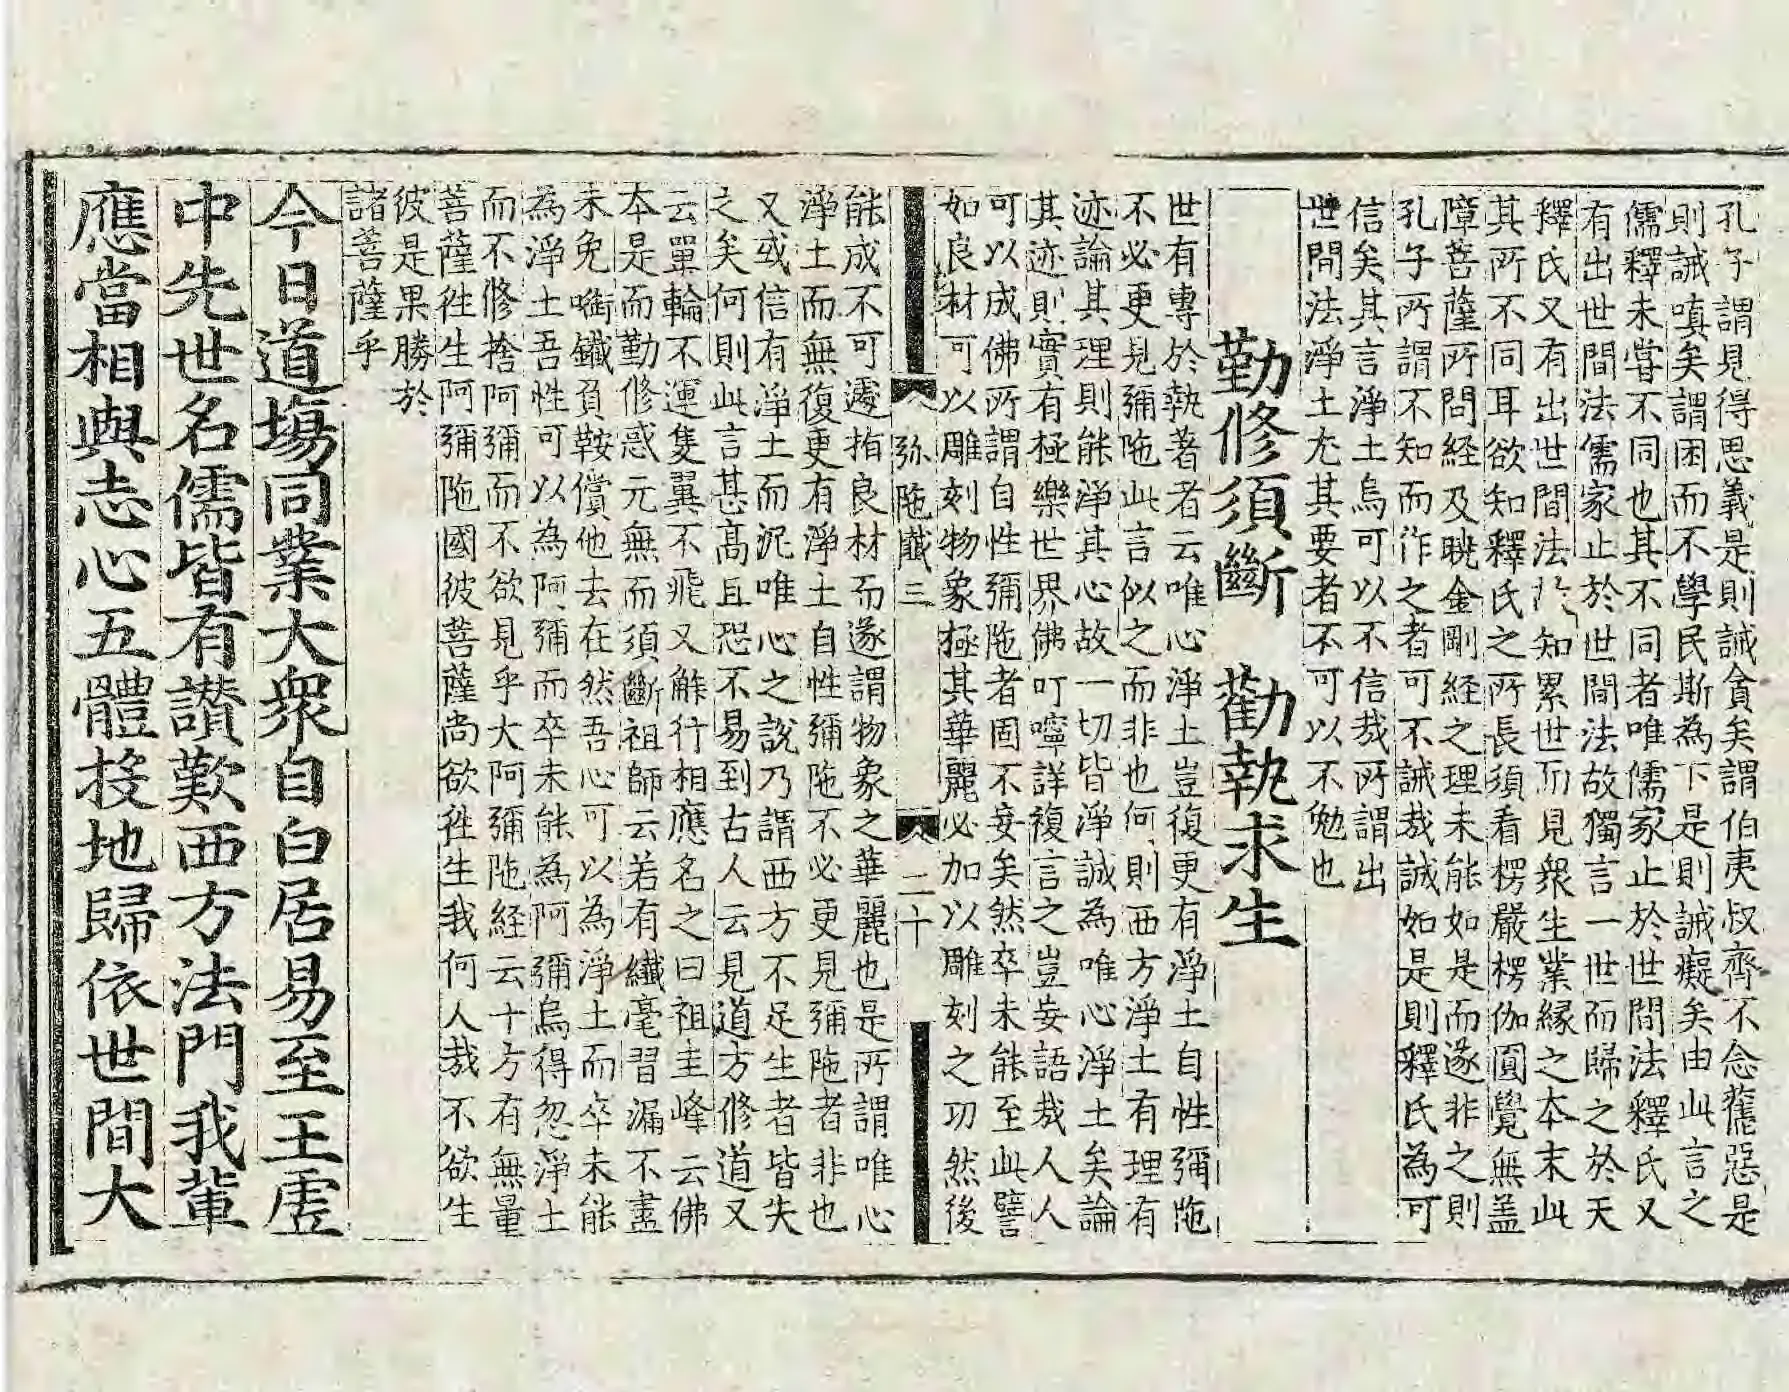 孔子謂見得思義是則誡貪矣謂伯夷叔齊不念舊惡是
則誡嗔矣謂困而不學民斯為下是則誡癡矣由此言之
儒釋未嘗不同也其不同者唯儒家止於世間法釋氏又
有出世間法儒家止於世間法故獨言一世而歸之於天
釋氏又有出世間法於知累世而見衆生業緣之本末此
其所不同耳欲知釋氏之所長須看楞嚴楞伽圓覺無盖
障菩薩所問経及曉金剛経之理未能如是而遂非之則
孔子所謂不知而作之者可不誡哉誠如是則釋氏為可
信矣其言淨土烏可以不信哉所謂出
世間法淨土尤其要者不可以不勉也
勤修須斷　勸執求生
世有專於執著者云唯心淨土豈復更有淨土自性彌陁
不必更見彌陁此言似之而非也何則西方淨土有理有
迹論其理則能淨其心故一切皆淨誠為唯心淨土矣論
其迹則實有極樂世界佛叮嚀詳複言之豈妄語哉人人
可以成佛所謂自性彌陁者固不妄矣然卒未能至此譬
如良材可以雕刻物象極其華麗必加以雕刻之功然後
弥陁懺三　二十
能成不可遽指良材而遂謂物象之華麗也是所謂唯心
淨土而無復更有淨土自性彌陁不必更見彌陁者非也
又或信有淨土而泥唯心之說乃謂西方不足生者皆失
之矣何則此言甚高且恐不易到古人云見道方修道又
云單輪不運隻翼不飛又解行相應名之曰祖圭峰云佛
本是而勤修惑元無而須斷祖師云若有纖毫習漏不盡
未免㘅鐵負鞍償他去在然吾心可以為淨土而卒未能
為淨土吾性可以為阿彌而卒未能為阿彌烏得忽淨土
而不修捨阿彌而不欲見乎大阿彌陁経云十方有無量
菩薩徃生阿彌陁國彼菩薩尚欲徃生我何人哉不欲生
彼是果勝於
諸菩薩乎
今日道塲同業大衆自白居易至王虛
中先世名儒皆有讃歎西方法門我輩
應當相與志心五體投地歸依世間大